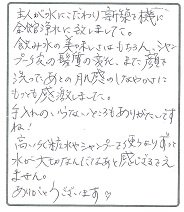 主人が水にこだわり新築を機に
全館浄水に致しました。
飲み水の美味しさはもちろん、シャン
プー後の髪質の変化、まで。顔を
洗ってあとの肌感のしなやかさに
もっても感激しました。
手入れのいらないところもありがたいです
ね!
高い化粧水やシャンプーを使うよりずっと
水が大切なんだなあと感じずるをえ
ません。
ありがとうございます♡